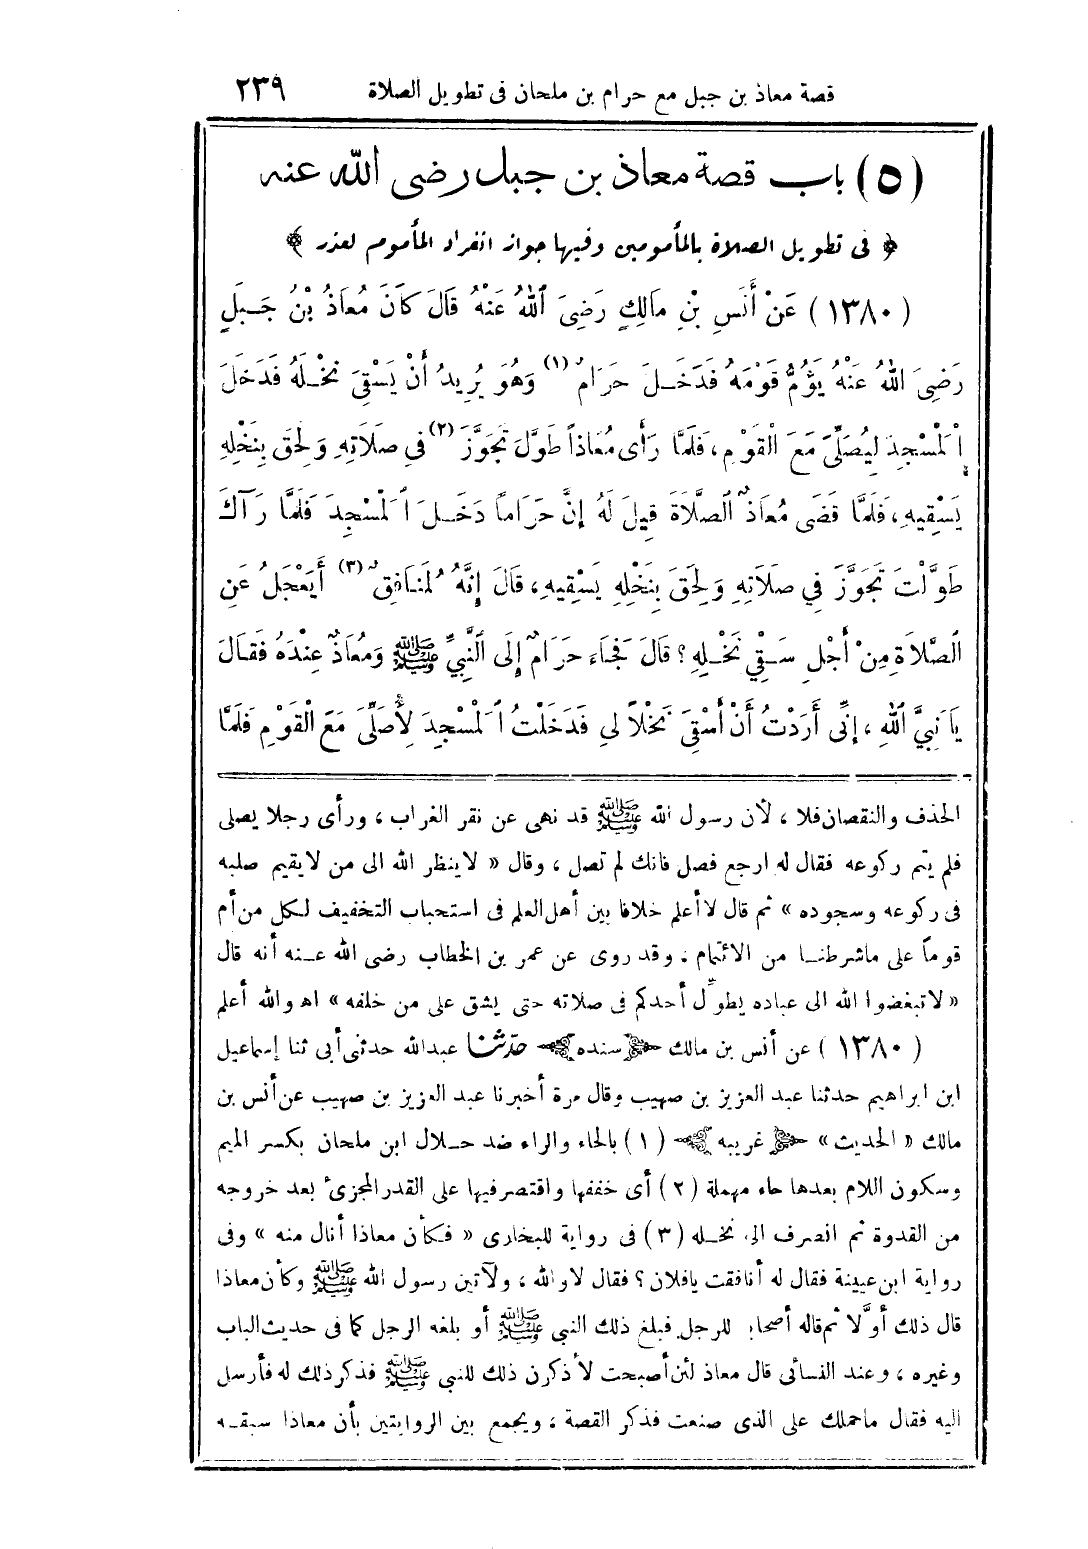 قصة معاذ بن جبل مع حرام بن ملحان فى تطويل الصلاة ٢٣٩
(٥) باب قصة معاذ بن جبل رضى الله عنه
﴿ فى تطويل الصلاة بالمأمومين وفيها جواز انفراد المأموم لعذر ﴾
(١٣٨٠) عَنْ أَنَسِ بْنِ مَالِكٍ رَضِىَ ٱللهُ عَنْهُ قَالَ كَانَ مُعَاذُ بْنُ جَبَلٍ
رَضِىَ اللهُ عَنْهُ يَؤُمُّ قَوْمَهُ فَدَخَلَ حَرَامٌ (١) وَهُوَ يُرِيدُ أَنْ يَسْقِىَ نَخْلَهُ فَدَخَلَ
اْلمَسْجِدَ لِيُصَلِّىَ مَعَ الْقَوْمِ، فَلَمَّا رَأَى مُعَاذاً طَوَّلَ تَجَوَّزَ (٢) فِي صَلَاتِهِ وَلَحِقَ بِنَخْلِهِ
يَسْقِيهِ، فَلَمَّا قَضَى مُعَاذٌ ٱلصَّلَاةَ قِيلَ لَهُ إِنَّ حَرَاماً دَخَلَ ٱلْمَسْجِدَ فَلَمَّا رَآكَ
طَوَّلْتَ تَجَوَّزَ فِي صَلَاتِهِ وَلَحِقَ بِنَخْلِهِ يَسْقِيهِ، قَالَ إِنَّهُ لَمُنَافِقٌ (٣) أَيَعْجَلُ عَنِ
ٱلصَّلَاةِ مِنْ أَجْلِ سَقْيِ نَخْلِهِ؟ قَالَ فَجَاءَ حَرَامٌ إِلَى ٱلنَّبِيِّ ﷺ وَمُعَاذٌ عِنْدَهُ فَقَالَ
يَا نَبِيَّ ٱللهِ، إِنِّى أَرَدْتُ أَنْ أَسْقِىَ نَخْلاً لِي فَدَخَلْتُ ٱلْمَسْجِدَ لِأُصَلِّىَ مَعَ الْقَوْمِ فَلَمَّا
الحذف والنقصان فلا ، لأن رسول الله ﷺ قد نهى عن نقر الغراب ، ورأى رجلا يصلى
فلم يتم ركوعه فقال له ارجع فصل فانك لم تصل ، وقال « لاينظر الله الى من لايقيم صلبه
فى ركوعه وسجوده » ثم قال لا أعلم خلافا بين أهل العلم فى استحباب التخفيف لكل من أم
قوماً على ماشرطنا من الائتمام . وقد روى عن عمر بن الخطاب رضى الله عنه أنه قال
« لاتبغضوا الله الى عباده يطوّل أحدكم فى صلاته حتى يشق على من خلفه » اهـ والله أعلم
( ١٣٨٠ ) عن أنس بن مالك سنده حدّثنا عبدالله حدثنى أبى ثنا إسماعيل
ابن ابراهيم حدثنا عبد العزيز بن صهيب وقال مرة أخبرنا عبد العزيز بن صهيب عن أنس بن
مالك « الحديث » غريبه (١) بالحاء والراء ضد حلال ابن ملحان بكسر الميم
وسكون اللام بعدها حاء مهملة (٢) أى خففها واقتصر فيها على القدر المجزئ بعد خروجه
من القدوة ثم انصرف الى نخله (٣) فى رواية للبخارى « فكأن معاذا أنال منه » وفى
رواية ابن عيينة فقال له أنافقت يافلان ؟ فقال لا والله ، ولآتين رسول الله ﷺ وكأن معاذا
قال ذلك أولًا ثم قاله أصحابه للرجل فبلغ ذلك النبى ﷺ أو بلغه الرجل كما فى حديث الباب
وغيره ، وعند النسائى قال معاذ لئن أصبحت لأذكرن ذلك للنبى ﷺ فذكر ذلك له فأرسل
اليه فقال ماحملك على الذى صنعت فذكر القصة ، ويجمع بين الروايتين بأن معاذا سبقه